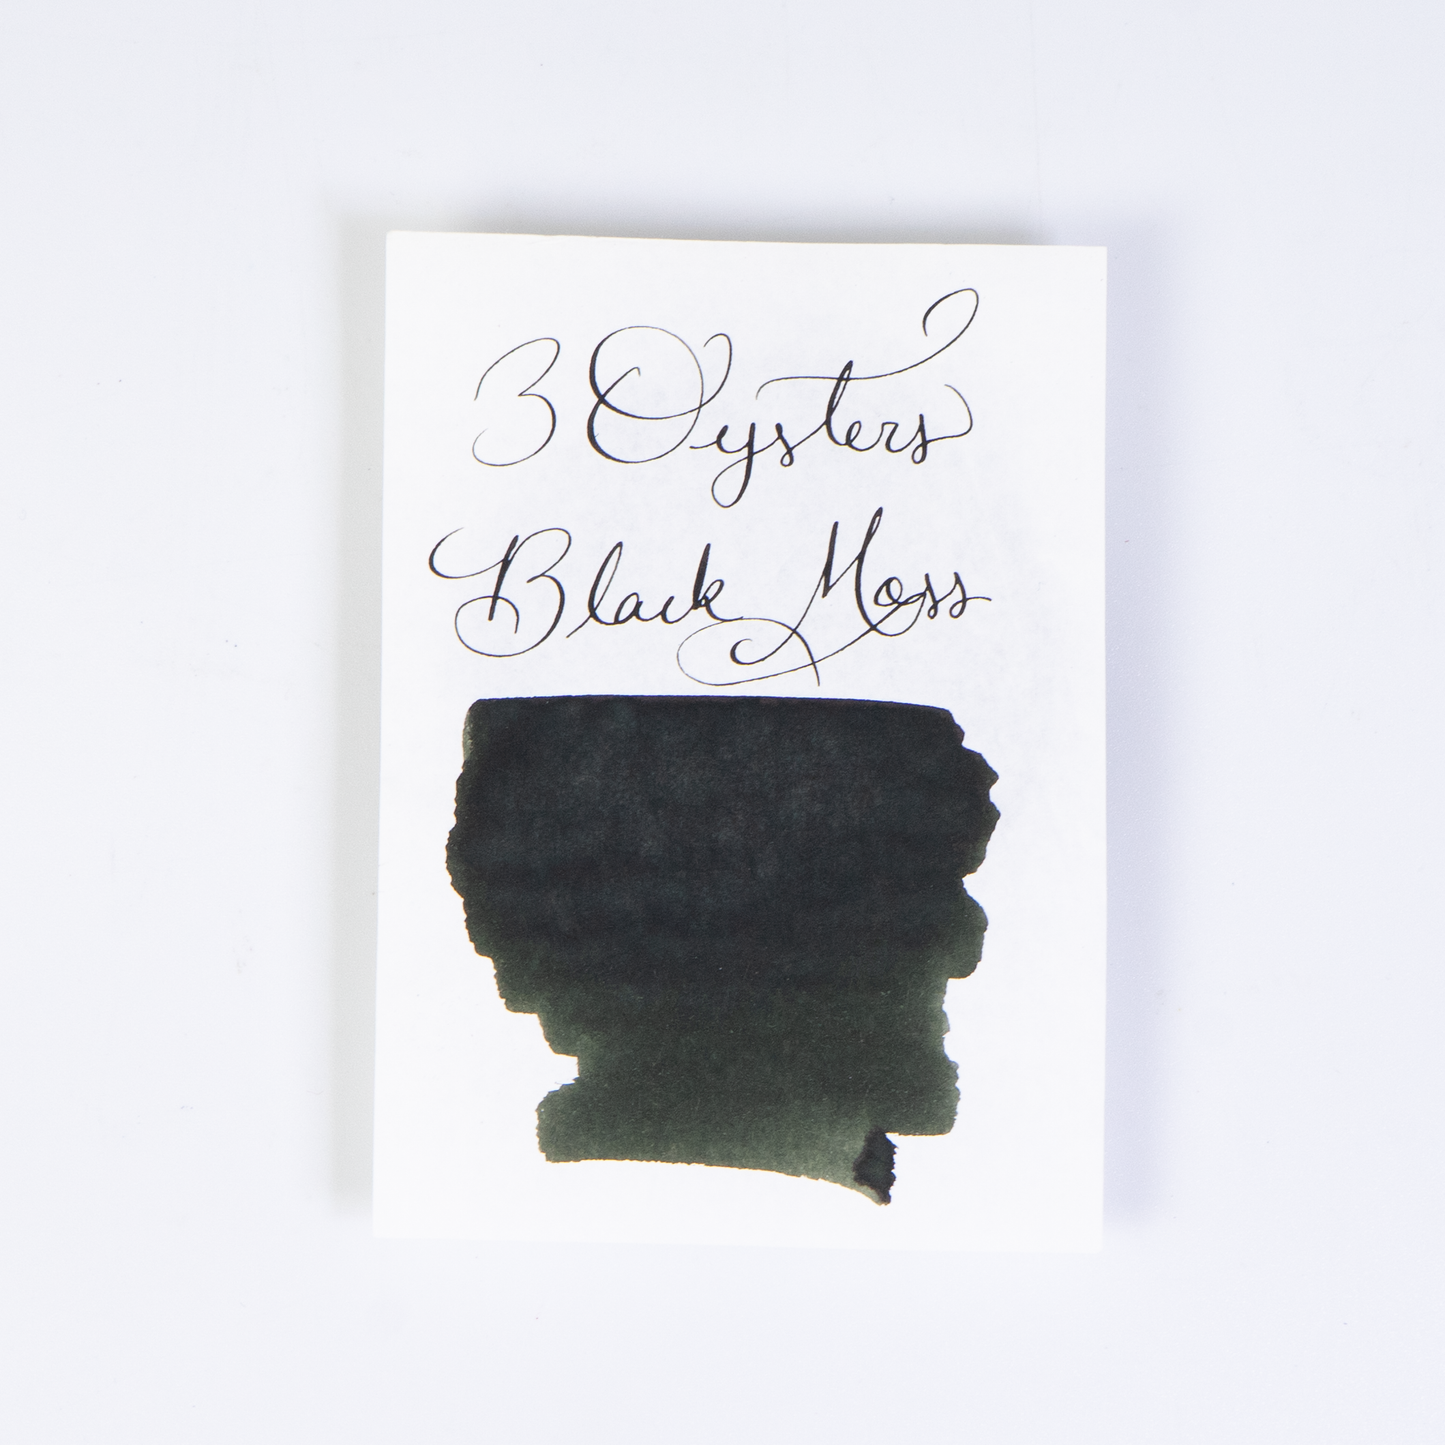 3 Oysters
Black Moss